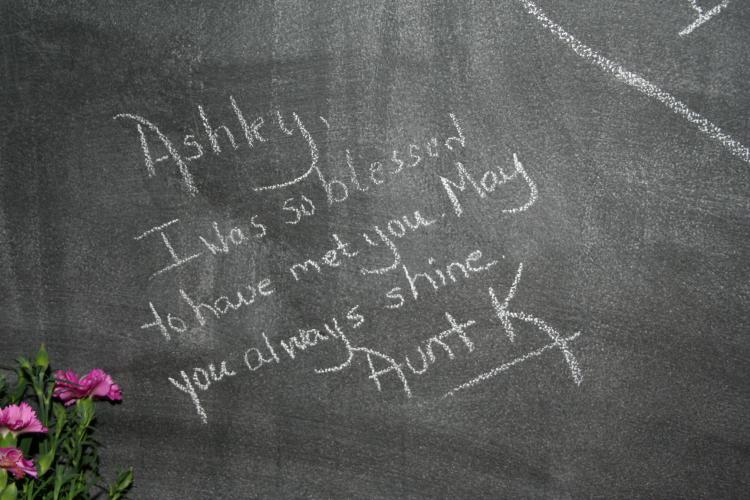 Ashky,
I was so blessed
to have met you. May
you always shine.
Aunt K